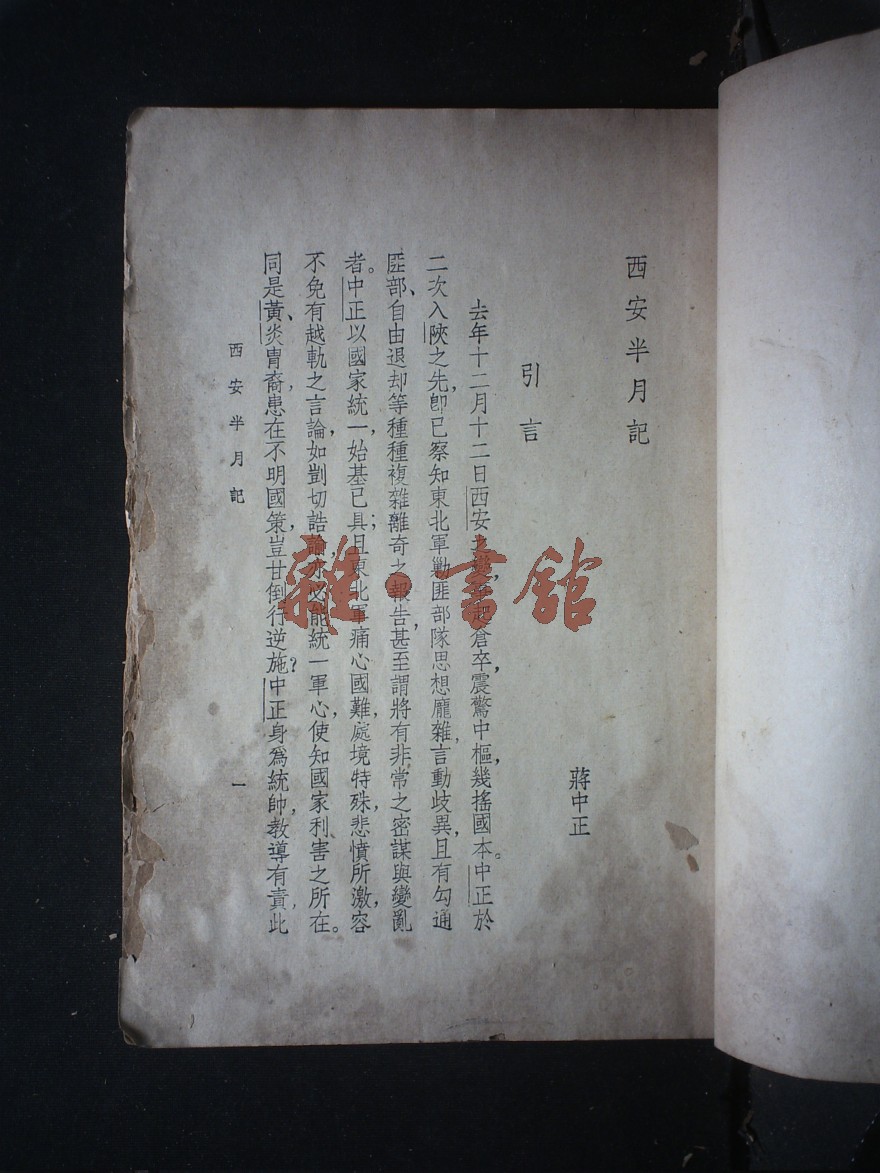 西安半月記
蔣中正
引言
去年十二月十二日西安之變，事起倉卒，震驚中樞，幾搖國本。中正於
二次入陝之先，卽已察知東北軍勦匪部隊思想龐雜，言動歧異，且有勾通
匪部、自由退却等種種複雜離奇之報告，甚至謂將有非常之密謀與變亂
者。中正以國家統一，始基已具；且東北軍痛心國難，處境特殊，悲憤所激，容
不免有越軌之言論，如剴切誥諭，亦必能統一軍心，使知國家利害之所在。
同是黃、炎冑裔，患在不明國策，豈甘倒行逆施？中正身爲統帥，教導有責，此
西安半月記
一
雜·書舘